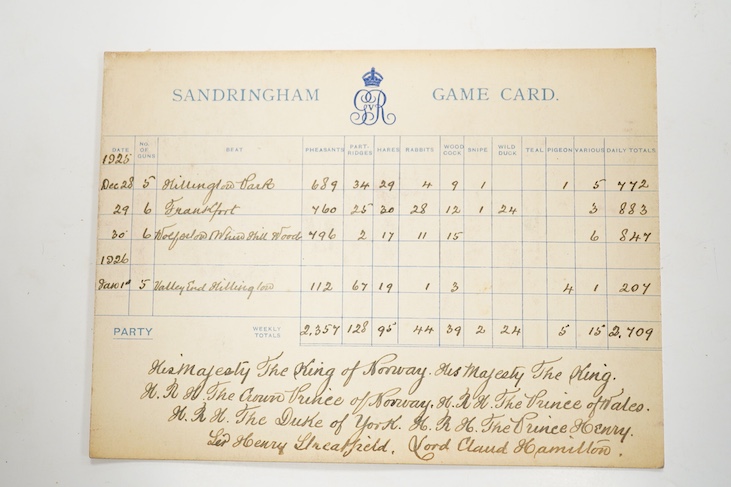 SANDRINGHAM GVR GAME CARD.
DATE NO. OF GUNS BEAT PHEASANTS PART-RIDGES HARES RABBITS WOOD COCK SNIPE WILD DUCK TEAL PIGEON VARIOUS DAILY TOTALS
1925
Dec 28 5 Hillington Park 689 34 29 4 9 1 1 5 772
29 6 Frankfort 760 25 30 28 12 1 24 3 883
30 6 Wolferton Whin Hill Wood 796 2 17 11 15 6 847
1926
Jan 1st 5 Valley End Hillington 112 67 19 1 3 4 1 207
PARTY WEEKLY TOTALS 2,357 128 95 44 39 2 24 5 15 2,709
His Majesty The King of Norway. His Majesty The King.
H. R. H. The Crown Prince of Norway. H. R. H. The Prince of Wales.
H. R. H. The Duke of York. H. R. H. The Prince Henry.
Sir Henry Streatfield. Lord Claud Hamilton.